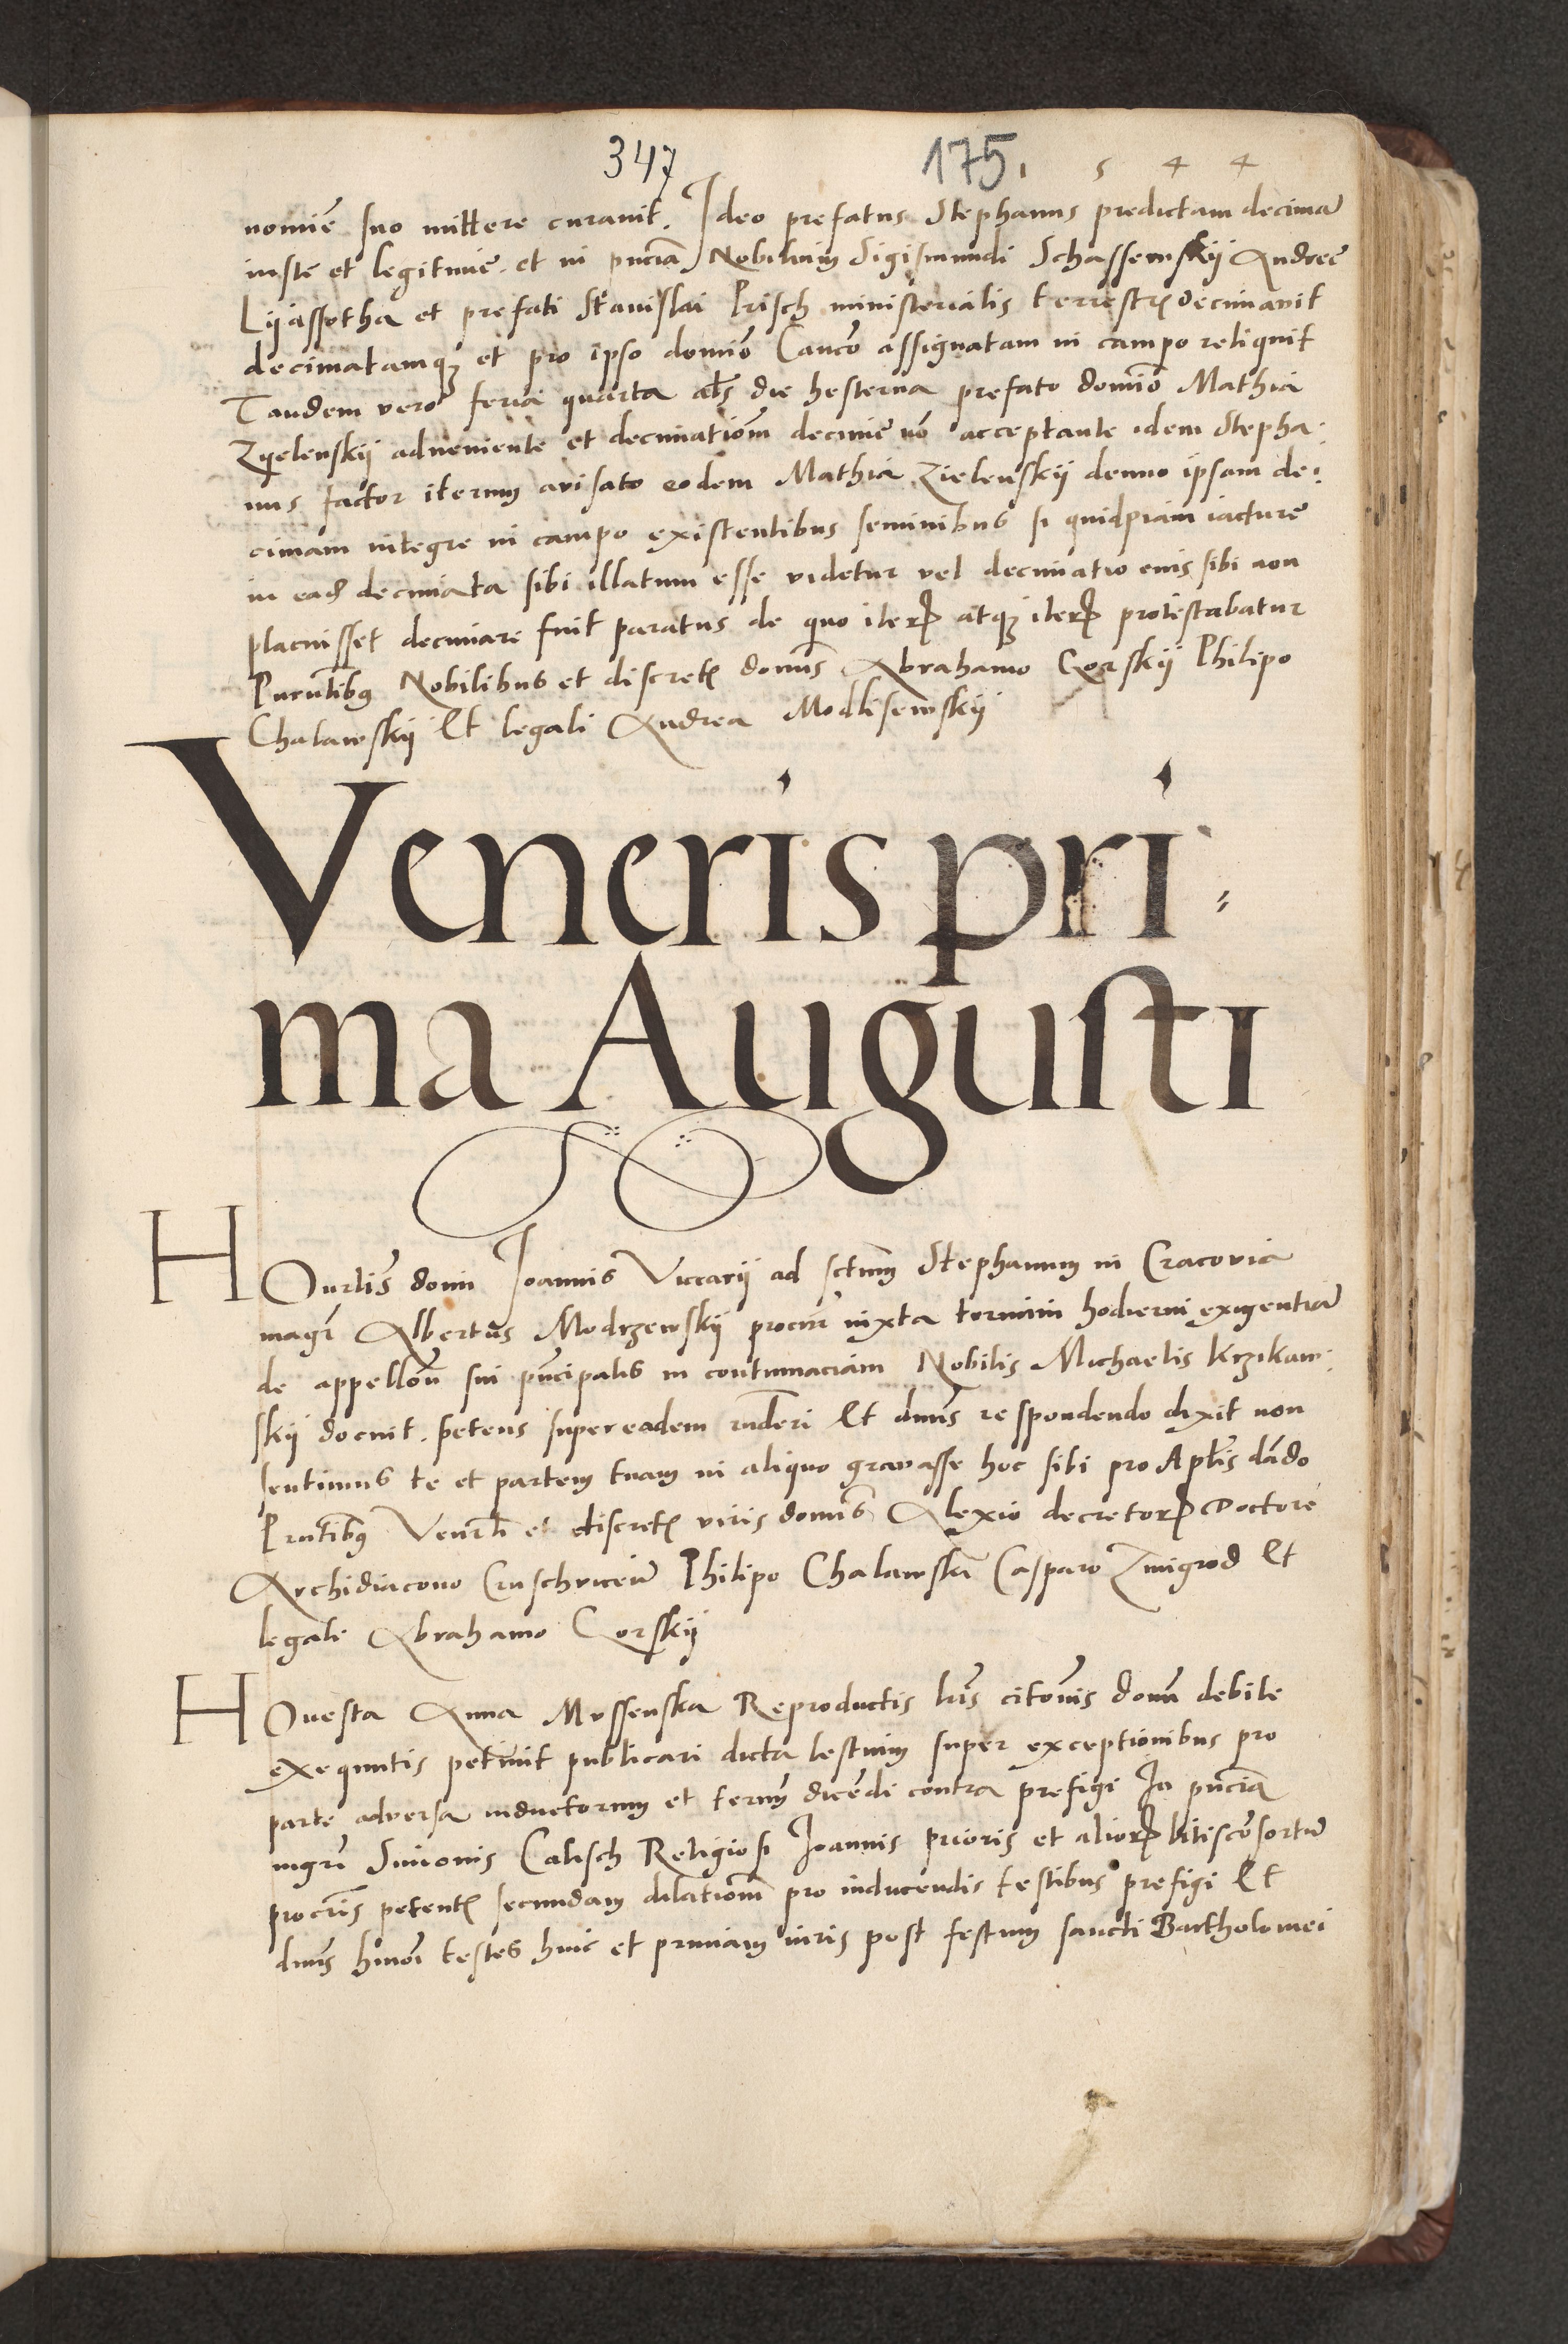 347 175. 1 5 4 4
nomīe suo mittere curavit. Ideo prefatus Stephanus predictam decimā
iuste et legitime. et in pn̄cia Nobilium Sigismundi Schassewskij Andree
Lijassotha et prefati Stanislai Prisch ministerialis terrestrꝭ decimavit
decimatamqꝫ et pro ipso domīo Canco assignatam in campo reliquit
Tandem vero feria quarta als̄ die hesterna prefato domīo Mathia
Zyelenskij adveniente et decimatiom̄ decime nō acceptante idem Stepha:
nus factor iterum avisato eodem Mathia Zielenskij denuo ipsam de:
cimam integre in campo existentibus seminibus si quidpiam iacture
in eadꝫ decimata sibi illatum esse videtur vel decimatio eius sibi non
placuisset decimare fuit paratus de quo iterꝝ atqꝫ iterꝝ protestabatur
Pn̄tibꝰ Nobilibus et discretꝭ domīs Abrahamo Gorskij Philipo
Chalawskij Et legali Andrea Modlisewskij
Veneris pri:
ma Augusti
HOn̄rlis domi Ioannis Vicarij ad sctm̄ Stephanum in Cracovia
magr̄ Albertus Modrzewskij procur̄ iuxta termini hodierni exigentiā
de appellon̄ sui pn̄cipalis in contumaciam Nobilis Michaelis Krzikaw:
skij docuit. petens super eadem rn̄deri Et dn̄us respondendo dixit non
sentimus te et partem tuam in aliquo gravasse hoc sibi pro Aplīs dādo
Pn̄tibꝰ Venerl̄i et discretꝭ viris domīs Alexio decretorꝝ Doctore
Archidiacono Cruschviceñ Philipo Chalawskij Casparo Zmigrod Et
legali Abrahamo Gorskij
HOnesta Anna Mossenska Reproductis lr̄is citon̄is domī debite
exequutis petivit publicari dicta testium super exceptionibus pro
parte adversa inductorum et term̄ dicēdi contra prefigi In pn̄cia
mgri Simonis Calisch Religiosi Ioannis prioris et aliorꝝ litiscōsortiū
procr̄is petentꝭ secundam dilationm̄ pro inducendis testibus prefigi Et
dn̄us hmōi testes hinc et primam iuris post festum sancti Bartholomei